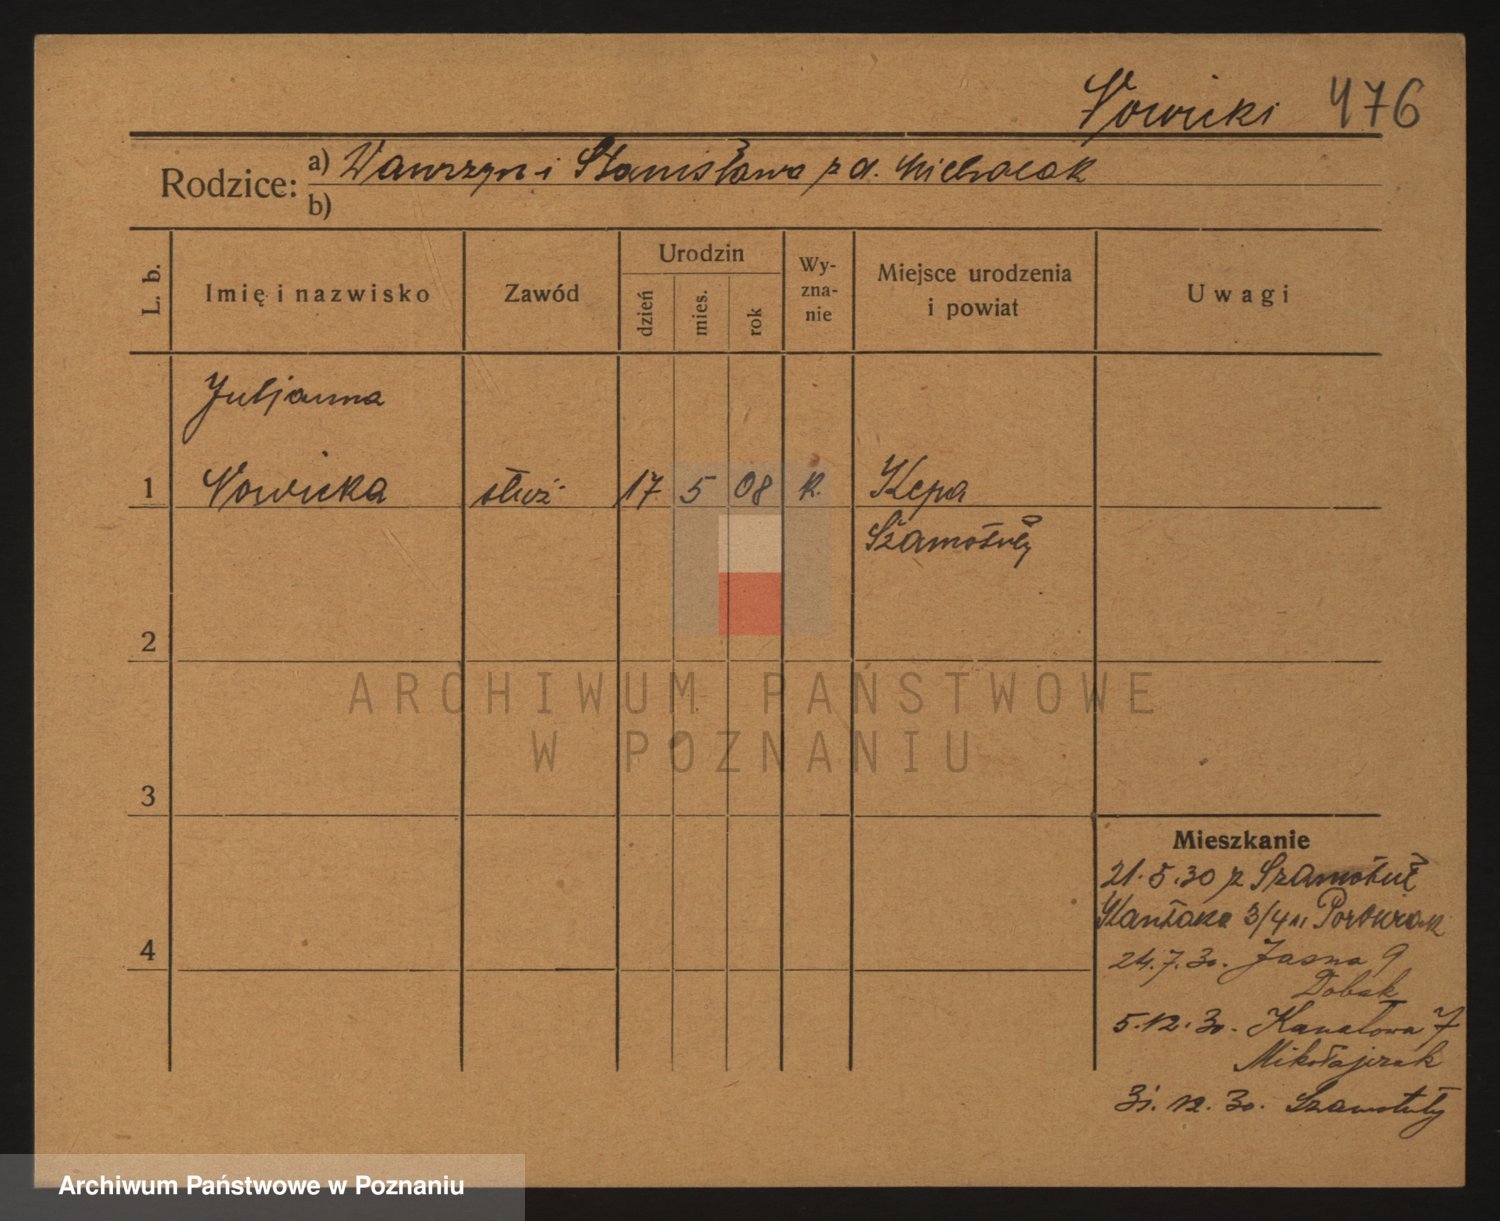 Nowicki 476
Rodzice:
a) Wawrzyn i Stanisława z d. Michalak
b)
L. b.
Imię i nazwisko
Zawód
Urodzin
dzień
mies.
rok
Wy-
zna-
nie
Miejsce urodzenia
i powiat
Uwagi
Juljanna
1 Nowicka służ. 17 5 08 k. Kępa
Szamotuły
2
ARCHIWUM PAŃSTWOWE
W POZNANIU
3
Mieszkanie
21.5.30 z Szamotuł
3/4
4
24.7.30. Jasna 9
Dobak
5.12.30. Kanałowa 7
Mikołajczak
31.12.30. Szamotuły
Archiwum Państwowe w Poznaniu